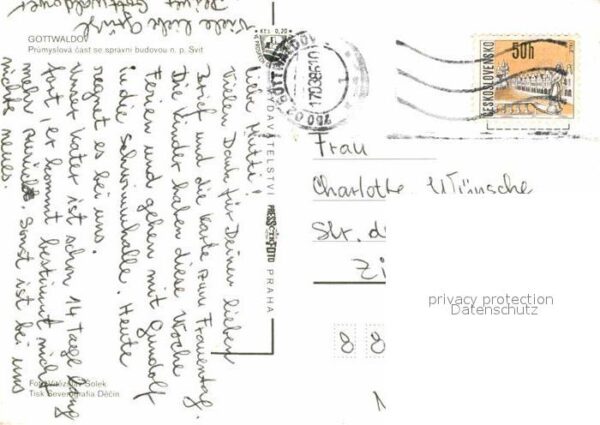 GOTTWALDOV
Průmyslová část se správní budovou n. p. Svit
Liebe Mutti!
Vielen Dank für Deinen lieben
Brief und die Karte zum Frauentag.
Die Kinder haben diese Woche
Ferien und gehen mit Gundolf
in die Schwimmhalle. Heute
regnet es bei uns.
Unser Kater ist schon 14 Tage lang
fort, er kommt bestimmt nicht
mehr zurück. Sonst ist bei uns
nichts neues.
Viele liebe Grüße
Gottwaldov
VYDAVATELSTVÍ
PRESSFOTO
PRAHA
Foto Vítězslav Šolek
Tisk Severografia Děčín
Kčs 0,20
760 02 GOTTWALDOV
ČESKOSLOVENSKO
50h
Frau
Charlotte Wünsche
Str. d
Zi
8 8
privacy protection
Datenschutz